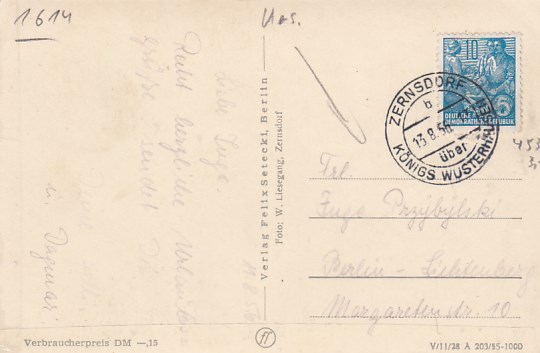 1614
Liebe Inge
Recht herzliche Urlaubs-
grüße sendet
u. Dagmar
Verbraucherpreis DM —,15
Verlag Felix Setecki, Berlin
Foto: W. Liesegang, Zernsdorf
10
DEUTSCHE
DEMOKRATISCHE REPUBLIK
ZERNSDORF
b
13.8.56
über
KÖNIGS WUSTERHAUSEN
Frl.
Inge Przybylski
Berlin-Lichtenberg
Margaretenstr. 10
V/11/28 A 203/55-1000